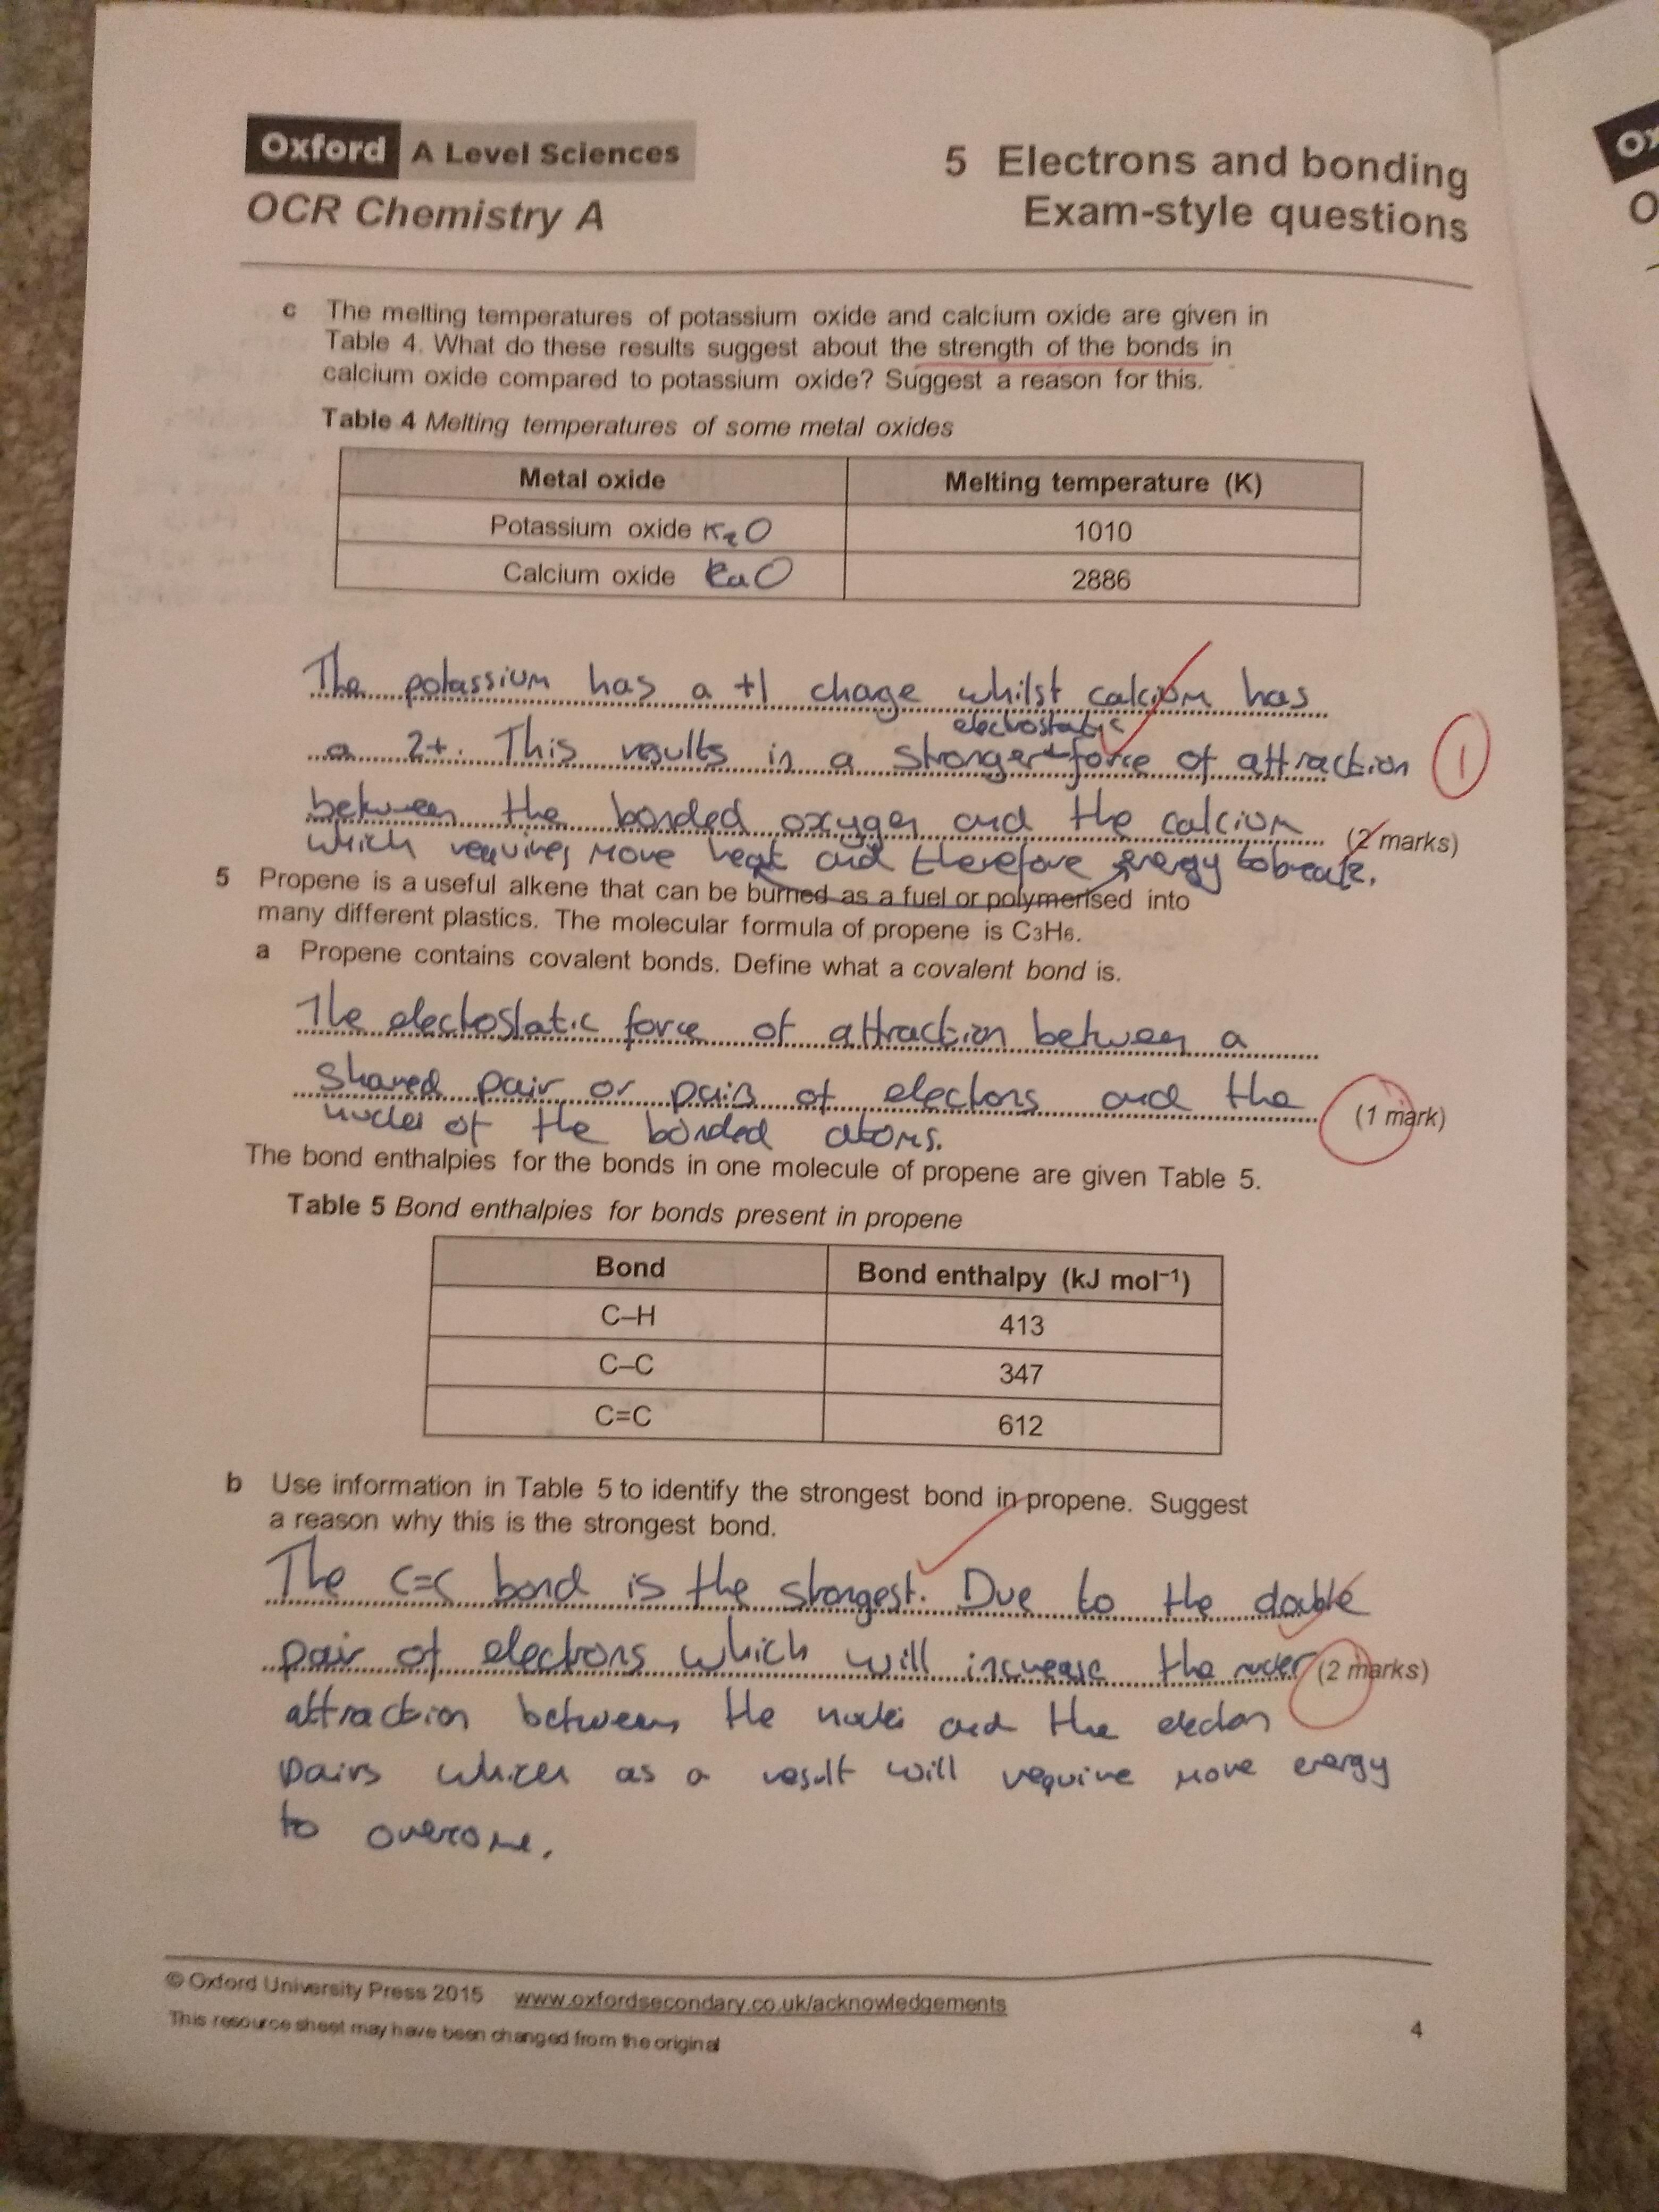 Oxford A Level Sciences
OCR Chemistry A
5 Electrons and bonding
Exam-style questions
c The melting temperatures of potassium oxide and calcium oxide are given in
Table 4. What do these results suggest about the strength of the bonds in
calcium oxide compared to potassium oxide? Suggest a reason for this.
Table 4 Melting temperatures of some metal oxides
Metal oxide Melting temperature (K)
Potassium oxide K₂O 1010
Calcium oxide CaO 2886
The potassium has a +1 chage whilst calcium has
electrostatic
a 2+. This results in a stronger force of attraction 1
between the bonded oxygen and the calcium (2 marks)
which requires more heat and therefore energy to break.
5 Propene is a useful alkene that can be burned as a fuel or polymerised into
many different plastics. The molecular formula of propene is C₃H₆.
a Propene contains covalent bonds. Define what a covalent bond is.
The electostatic force of attraction between a
shared pair or pairs of electons and the (1 mark)
nuclei of the bonded atoms.
The bond enthalpies for the bonds in one molecule of propene are given Table 5.
Table 5 Bond enthalpies for bonds present in propene
Bond Bond enthalpy (kJ mol⁻¹)
C–H 413
C–C 347
C=C 612
b Use information in Table 5 to identify the strongest bond in propene. Suggest
a reason why this is the strongest bond.
The C=C bond is the strongest. Due to the double
pair of electrons which will increase the (2 marks)
attraction between the nuclei and the electon
pairs which as a result will require more energy
to overcome.
© Oxford University Press 2015 www.oxfordsecondary.co.uk/acknowledgements
This resource sheet may have been changed from the original
4